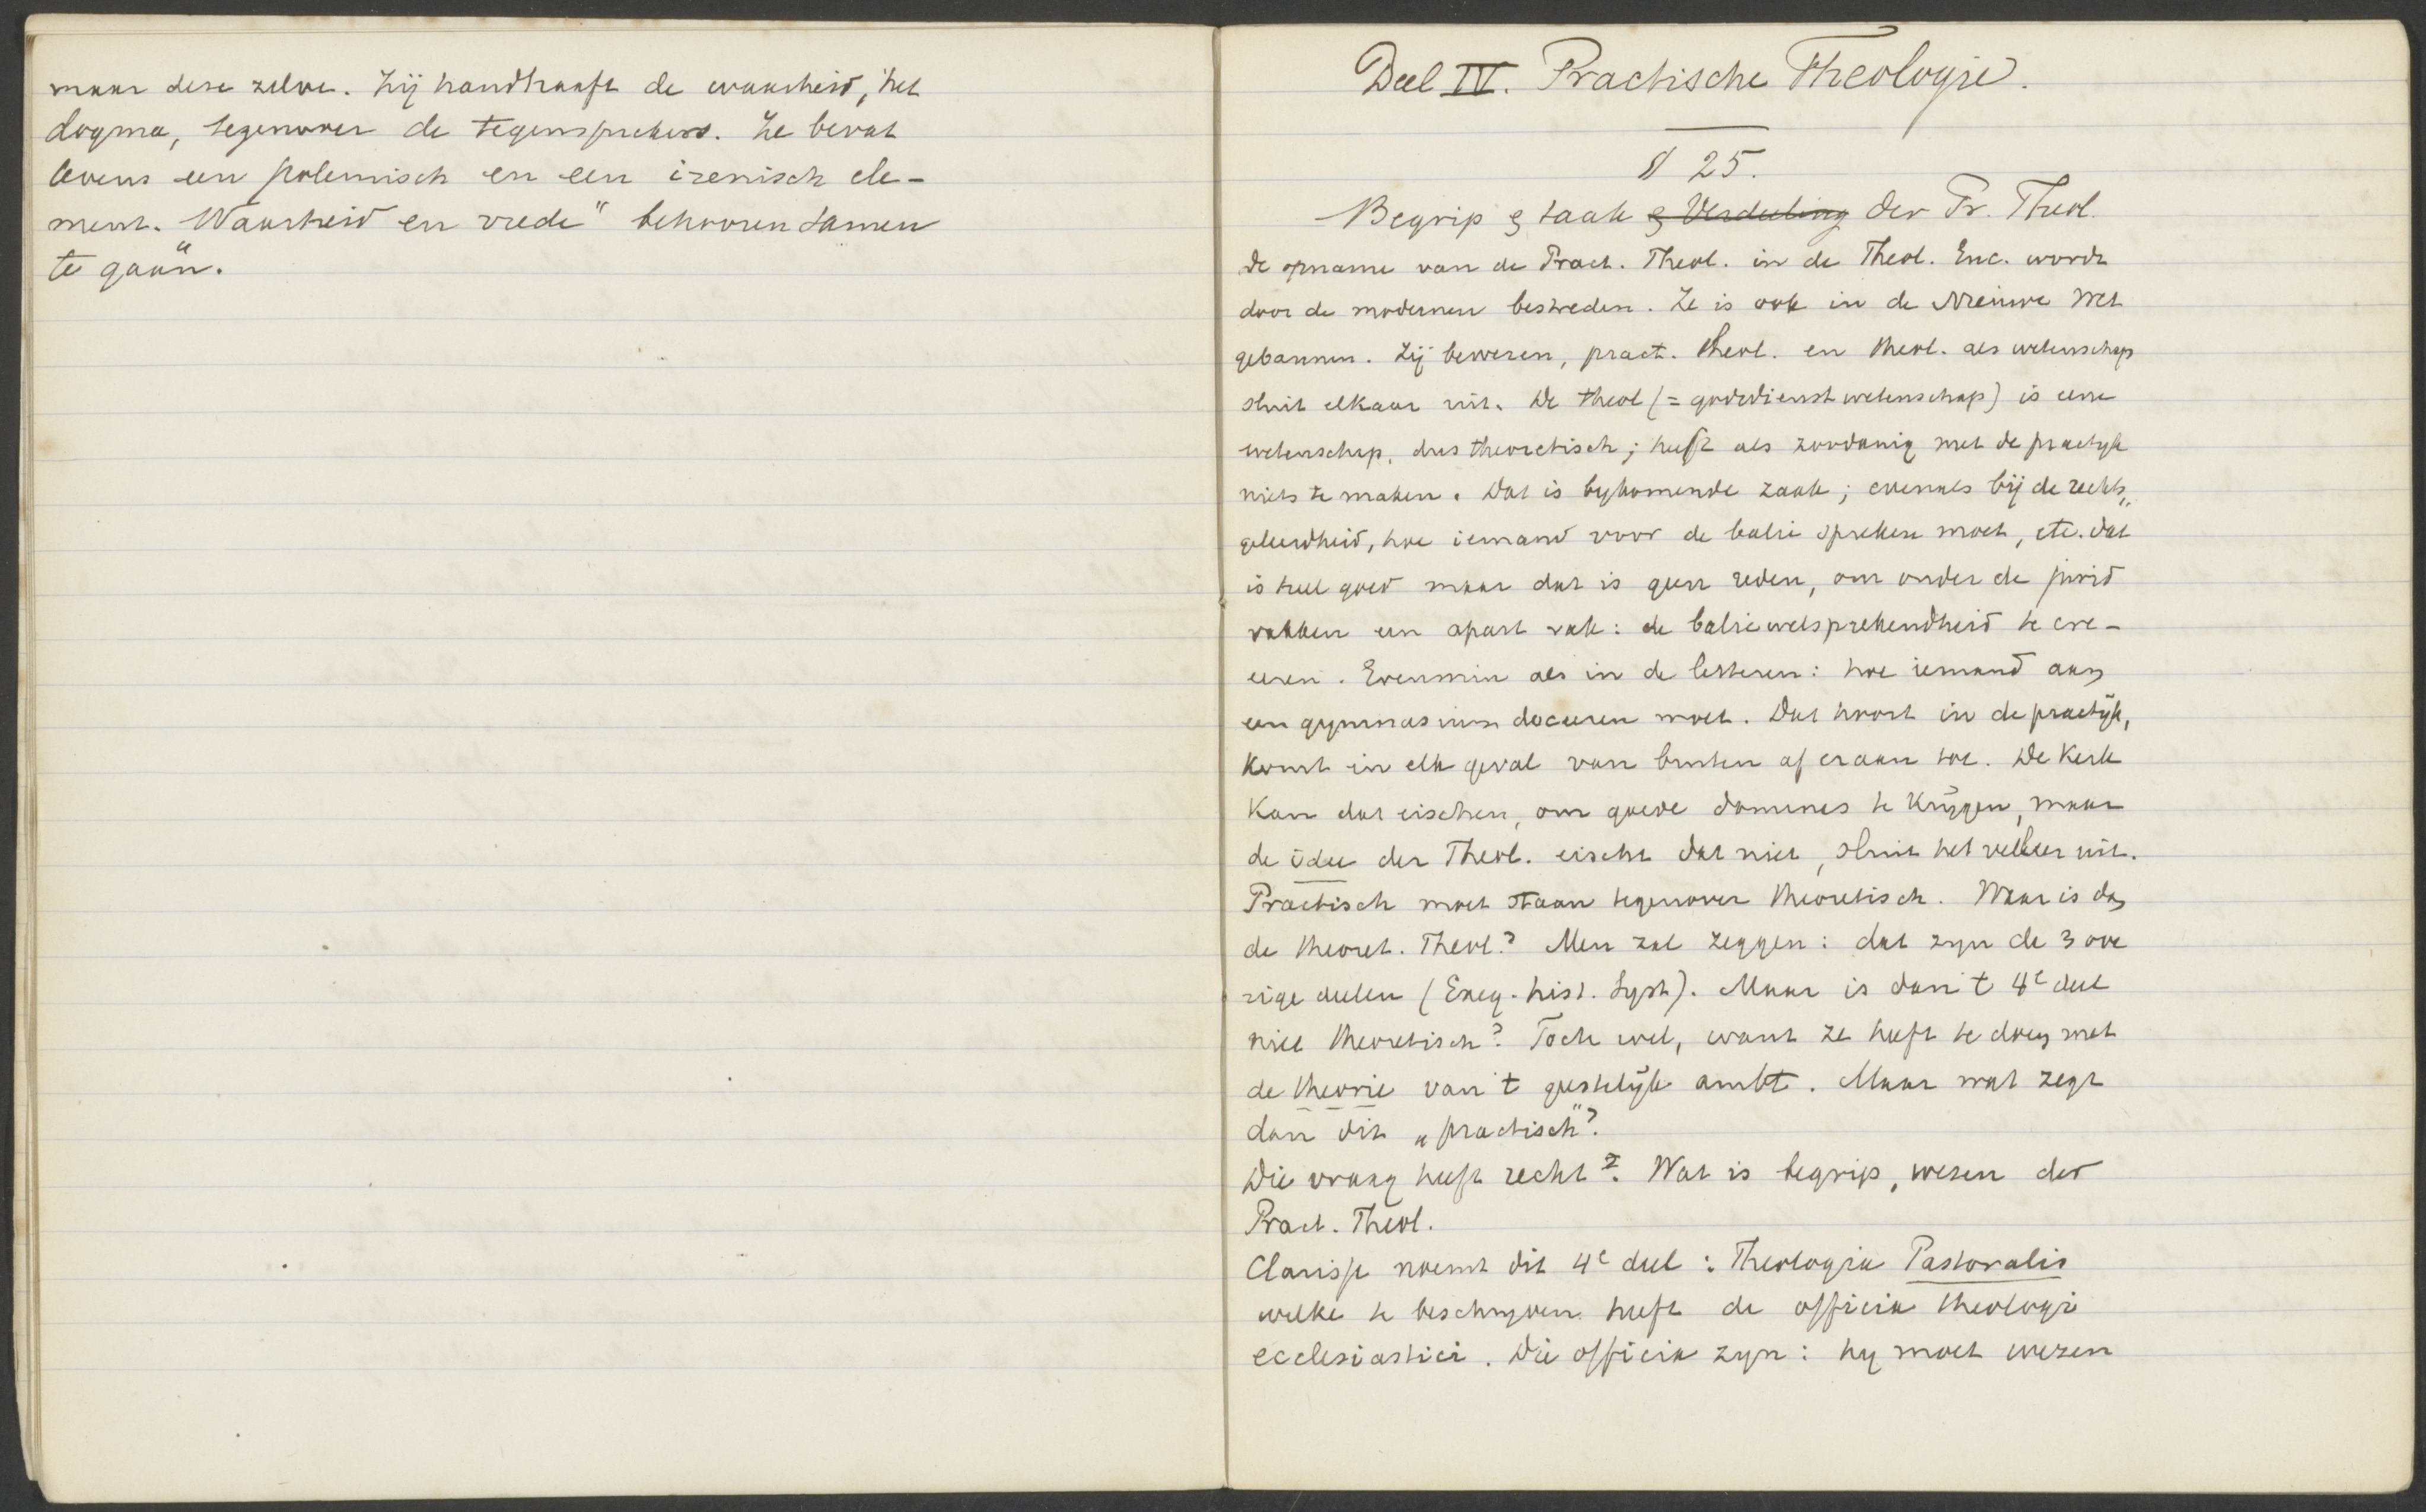 maar deze zelve. Zij handhaaft de waarheid, het
dogma, tegenover de tegensprekers. Ze bevat
tevens een polemisch en een irenisch ele-
ment. Waarheid en vrede" behooren samen
te gaan.
Deel IV. Practische Theologie.
§ 25.
Begrip & taak & Verdeeling der Pr. Theol.
De opname van de Pract. Theol. in de Theol. Enc. wordt
door de modernen bestreden. Ze is ook in de Nieuwe Wet
gebannen. Zij beweren, pract. theol. en theol. als wetenschap
sluit elkaar uit. De theol (= godsdienstwetenschap) is eene
wetenschap, dus theoretisch; heeft als zoodanig met de practyk
niets te maken. Dat is bykomende zaak; evenals bij de rechts„
geleerdheid, hoe iemand voor de balie spreken moet, etc. Dat
is heel goed maar dat is geen reden, om onder de jurid
vakken een apart vak: de baliewelsprekendheid te cre-
eeren. Evenmin als in de letteren: hoe iemand aan
een gymnasium doceeren moet. Dat hoort in de practijk,
komt in elk geval van buiten af eraan toe. De Kerk
kan dat eischen, om goede domines te krijgen, maar
de idee der Theol. eischt dat niet, sluit het veeleer uit.
Practisch moet staan tegenover theoretisch. Waar is dan
de theoret. Theol.? Men zal zeggen: dat zyn de 3 ove
rige deelen (Exeg. hist. Syst). Maar is dan 't 4e deel
niet theoretisch? Toch wel, want ze heeft te doen met
de theorie van 't geestelijk ambt. Maar wat zegt
dan dit „practisch"?
Die vraag heeft recht. Wat is begrip, wezen der
Pract. Theol.
Clarisse noemt dit 4e deel: Theologia Pastoralis
welke te beschryven heeft de officia theologi
ecclesiastici. Die officia zyn: hy moet wezen